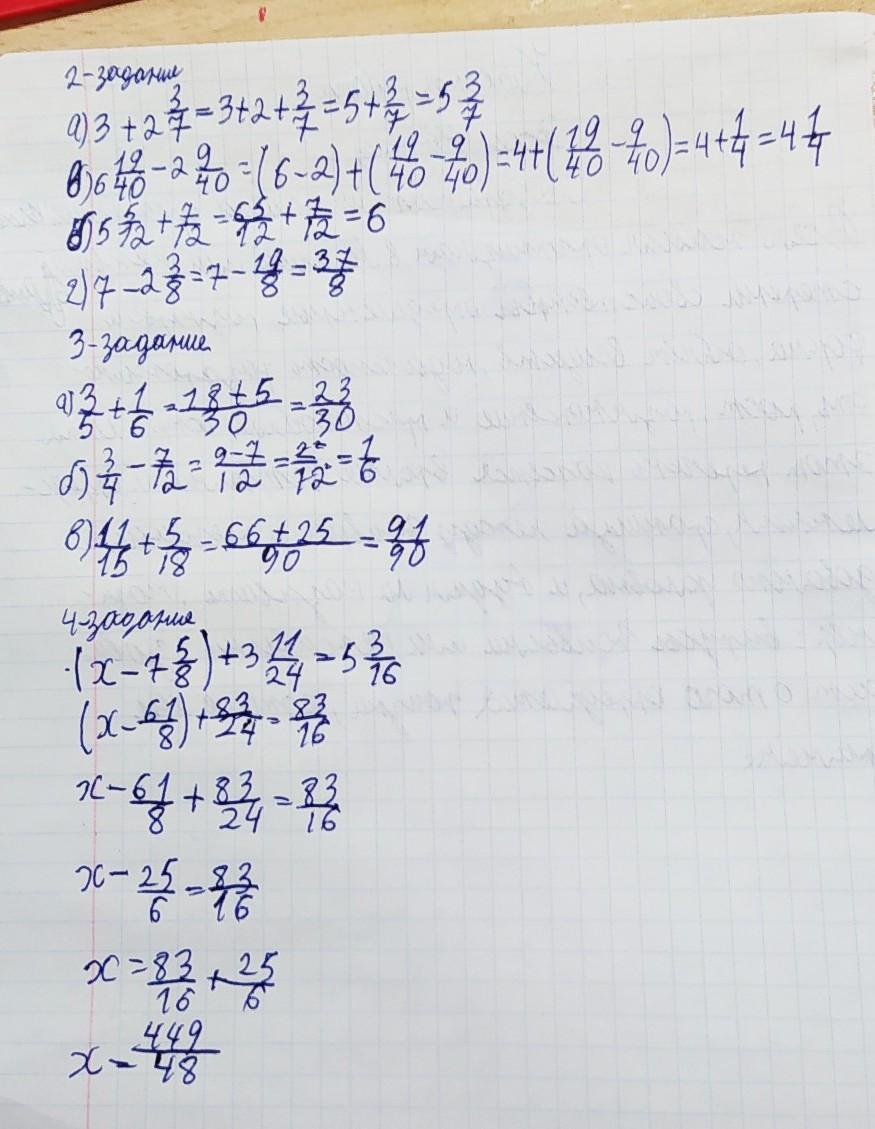 2-задание
а) 3 + 2 3/7 = 3+2+3/7 = 5+3/7 = 5 3/7
в) 6 19/40 - 2 9/40 = (6-2)+(19/40 - 9/40) = 4+(19/40 - 9/40) = 4+1/4 = 4 1/4
б) 5 5/12 + 7/12 = 65/12 + 7/12 = 6
г) 7 - 2 3/8 = 7 - 19/8 = 37/8
3-задание
а) 3/5 + 1/6 = 18+5/30 = 23/30
б) 3/4 - 7/12 = 9-7/12 = 2/12 = 1/6
в) 11/15 + 5/18 = 66+25/90 = 91/90
4-задание
(x - 7 5/8) + 3 11/24 = 5 3/16
(x - 61/8) + 83/24 = 83/16
x - 61/8 + 83/24 = 83/16
x - 25/6 = 83/16
x = 83/16 + 25/6
x = 449/48